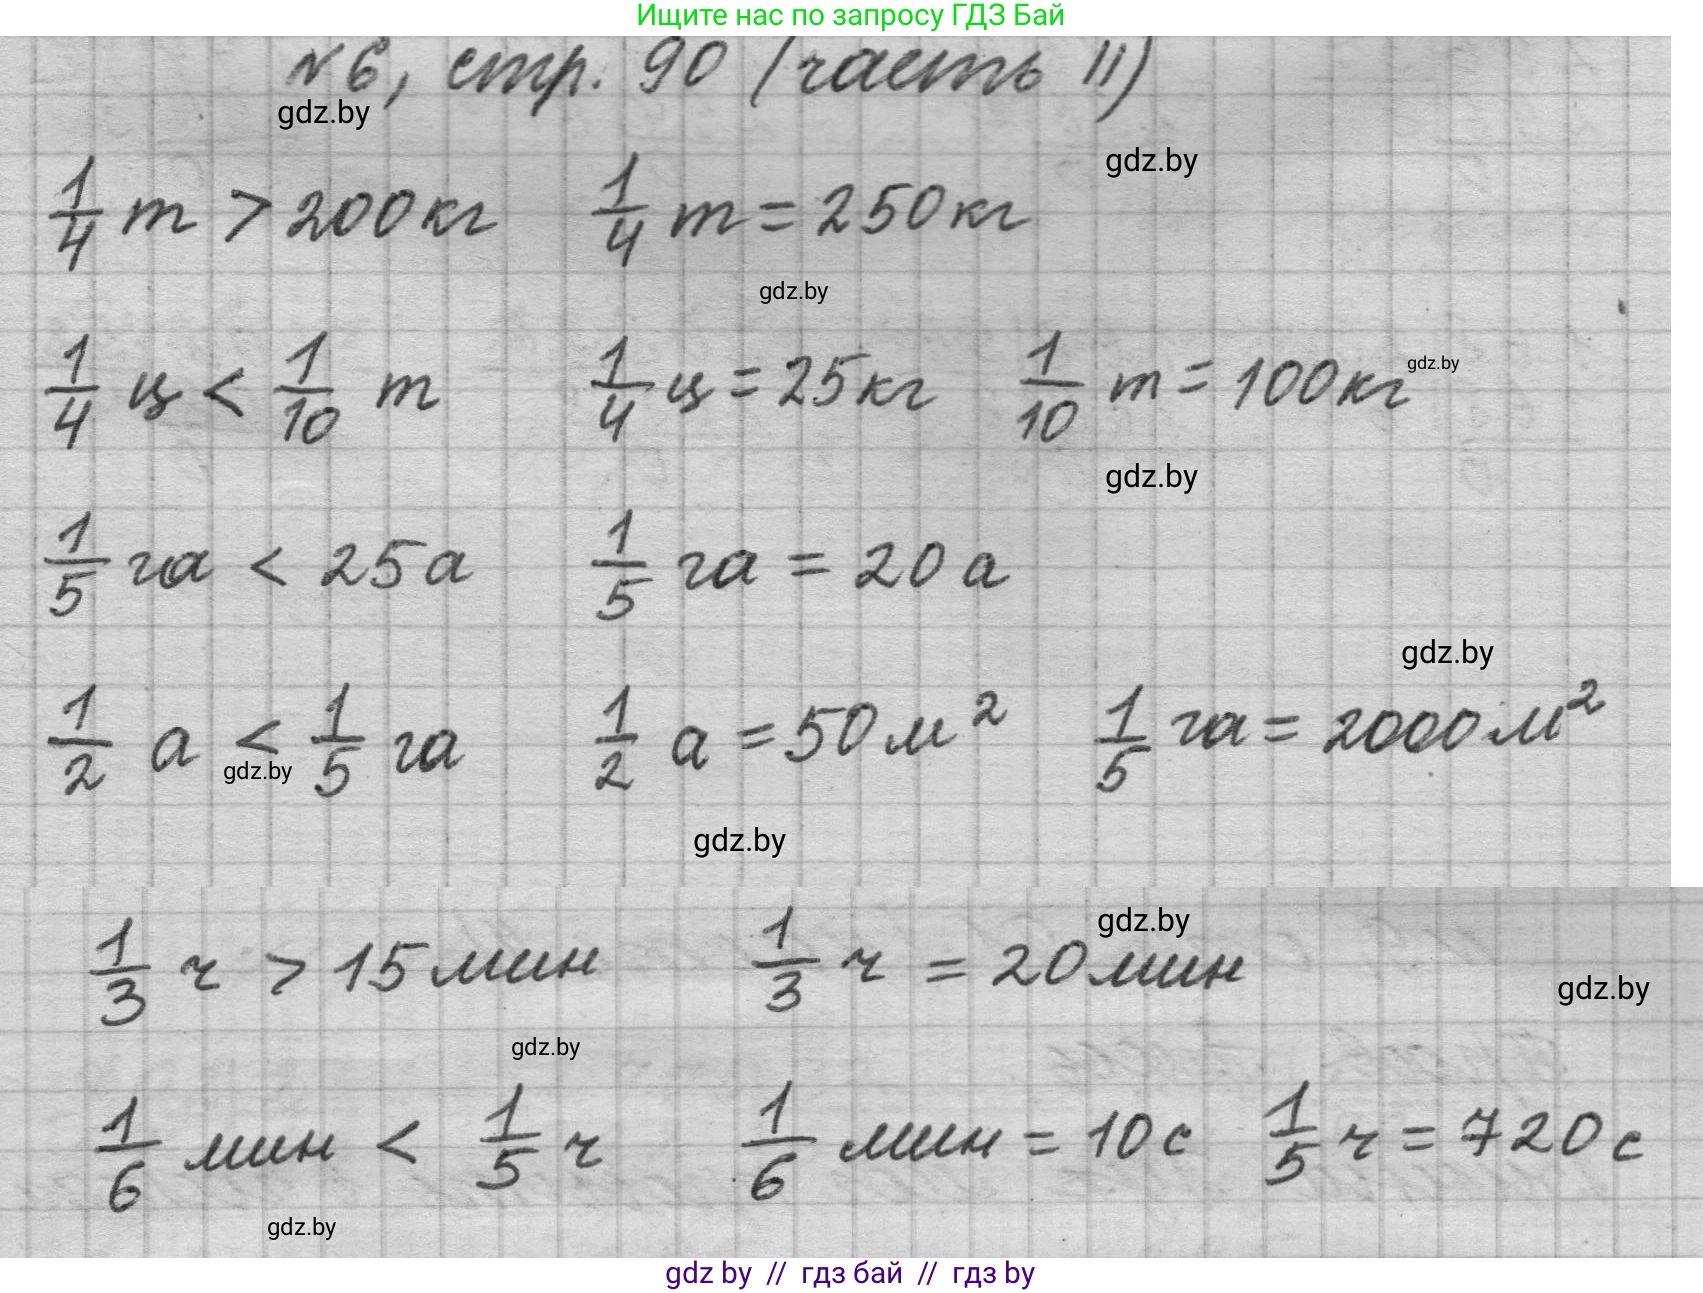 Ищите нас по запросу ГДЗ Бай
№6, стр. 90 (часть II)
gdz.by
gdz.by
1/4 т > 200кг 1/4 т = 250кг
gdz.by
1/4 ц < 1/10 т 1/4 ц = 25кг 1/10 т = 100кг
gdz.by
gdz.by
1/5 га < 25а 1/5 га = 20 а
gdz.by
1/2 а < 1/5 га 1/2 а = 50м² 1/5 га = 2000м²
gdz.by
gdz.by
gdz.by
1/3 ч > 15мин 1/3 ч = 20мин
gdz.by
gdz.by
1/6 мин < 1/5 ч 1/6 мин = 10с 1/5 ч = 720с
gdz.by
gdz by // гдз бай // гдз by